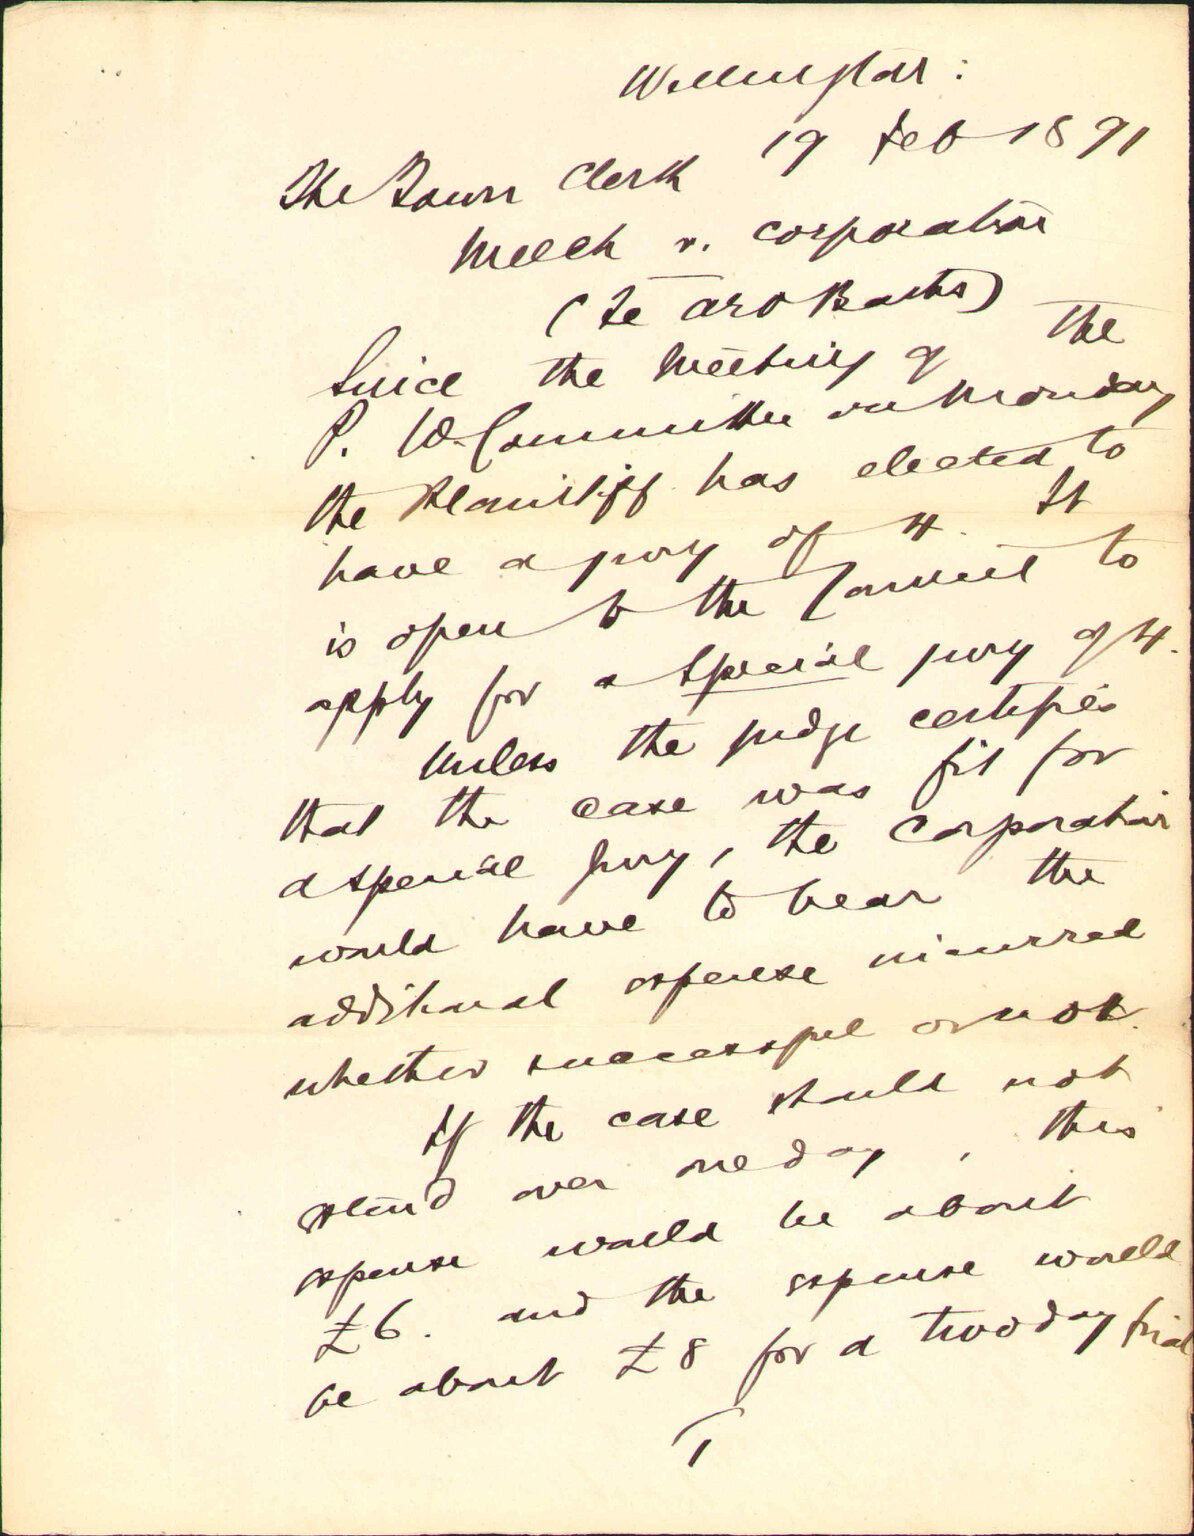 Wellington:
19 Feb 1891
The Town Clerk
Meech v. Corporation
(Te Aro Baths)
Since the Meeting of the
P. W. Committee on Monday
the Plaintiff has elected to
have a jury of 4. It
is open to the Council to
apply for a Special jury of 4.
Unless the judge certifies
that the case was fit for
a special Jury, the Corporation
would have to bear the
additional expense incurred
whether successful or not.
If the case should not
stand over one day, this
expense would be about
£6. and the expense would
be about £8 for a two day trial